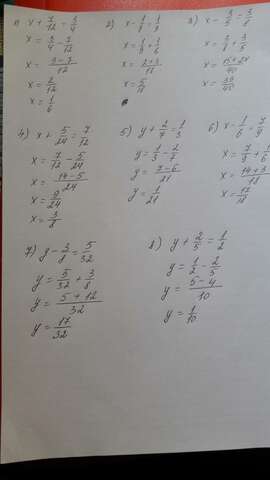 1) x + 7/12 = 3/4
x = 3/4 - 7/12
x = 9-7/12
x = 2/12
x = 1/6
2) x - 1/6 = 1/9
x = 1/9 + 1/6
x = 2+3/18
x = 5/18
3) x - 3/5 = 3/8
x = 3/8 + 3/5
x = 15+24/40
x = 39/40
4) x + 5/24 = 7/12
x = 7/12 - 5/24
x = 14-5/24
x = 9/24
x = 3/8
5) y + 2/7 = 1/3
y = 1/3 - 2/7
y = 7-6/21
y = 1/21
6) x - 1/6 = 7/9
x = 7/9 + 1/6
x = 14+3/18
x = 17/18
7) y - 3/8 = 5/32
y = 5/32 + 3/8
y = 5+12/32
y = 17/32
8) y + 2/5 = 1/2
y = 1/2 - 2/5
y = 5-4/10
y = 1/10